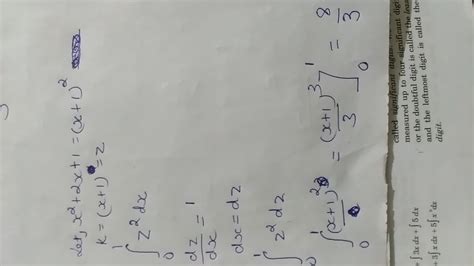 let, x²+2x+1 = (x+1)²
k = (x+1) = z
∫₀¹ z² dx
dz/dx = 1
dx = dz
∫₀¹ z² dz
∫₀¹ (x+1)² = (x+1)³/3 ]₀¹ = 8/3
called significant
measured up to four significant
or the doubtful digit is called the
and the leftmost digit is called the
digit.
∫ 3x dx + ∫ 5 dx